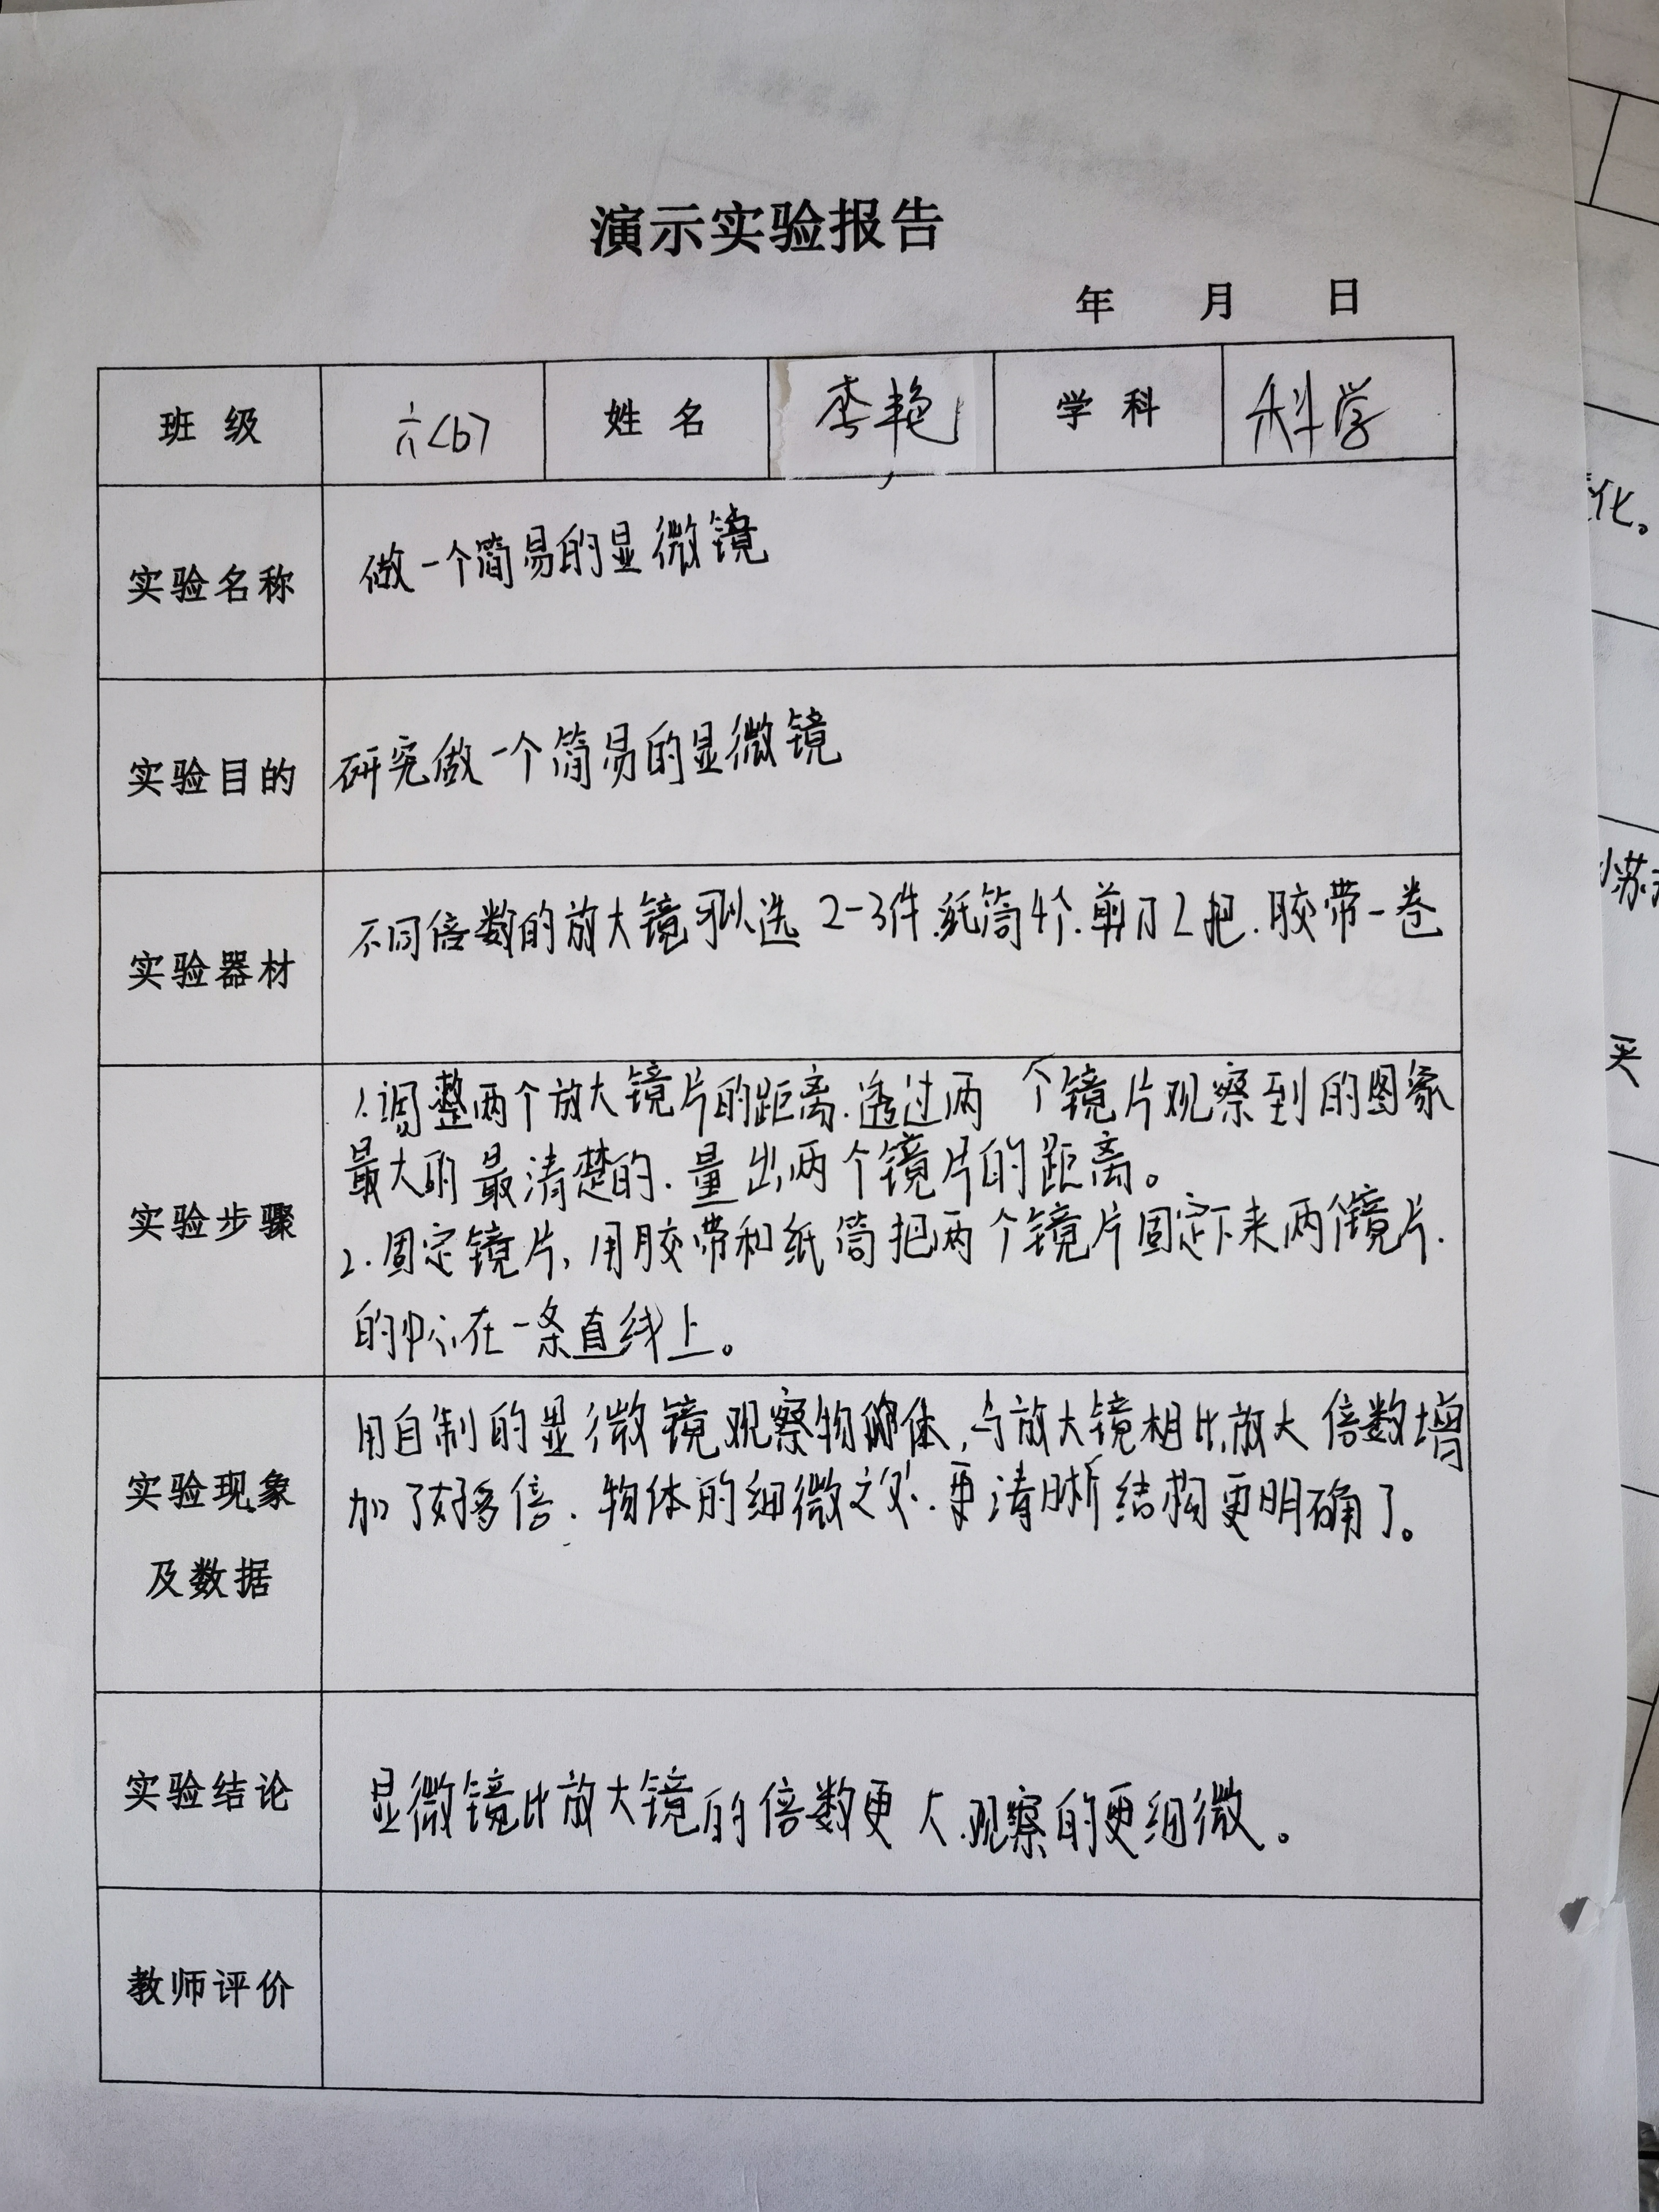 演示实验报告
年 月 日
班 级 六<6> 姓 名 李艳 学 科 科学
实验名称 做一个简易的显微镜
实验目的 研究做一个简易的显微镜
实验器材 不同倍数的放大镜可以选2-3件.纸筒4个.剪刀2把.胶带一卷
实验步骤
1.调整两个放大镜片的距离.透过两个镜片观察到的图象
最大的最清楚的.量出两个镜片的距离。
2.固定镜片,用胶带和纸筒把两个镜片固定下来两个镜片.
的中心在一条直线上。
实验现象
及数据
用自制的显微镜观察物体,与放大镜相比,放大倍数增
加了好多倍.物体的细微之处.更清晰结构更明确了。
实验结论 显微镜比放大镜的倍数更大.观察的更细微。
教师评价
化。
苏